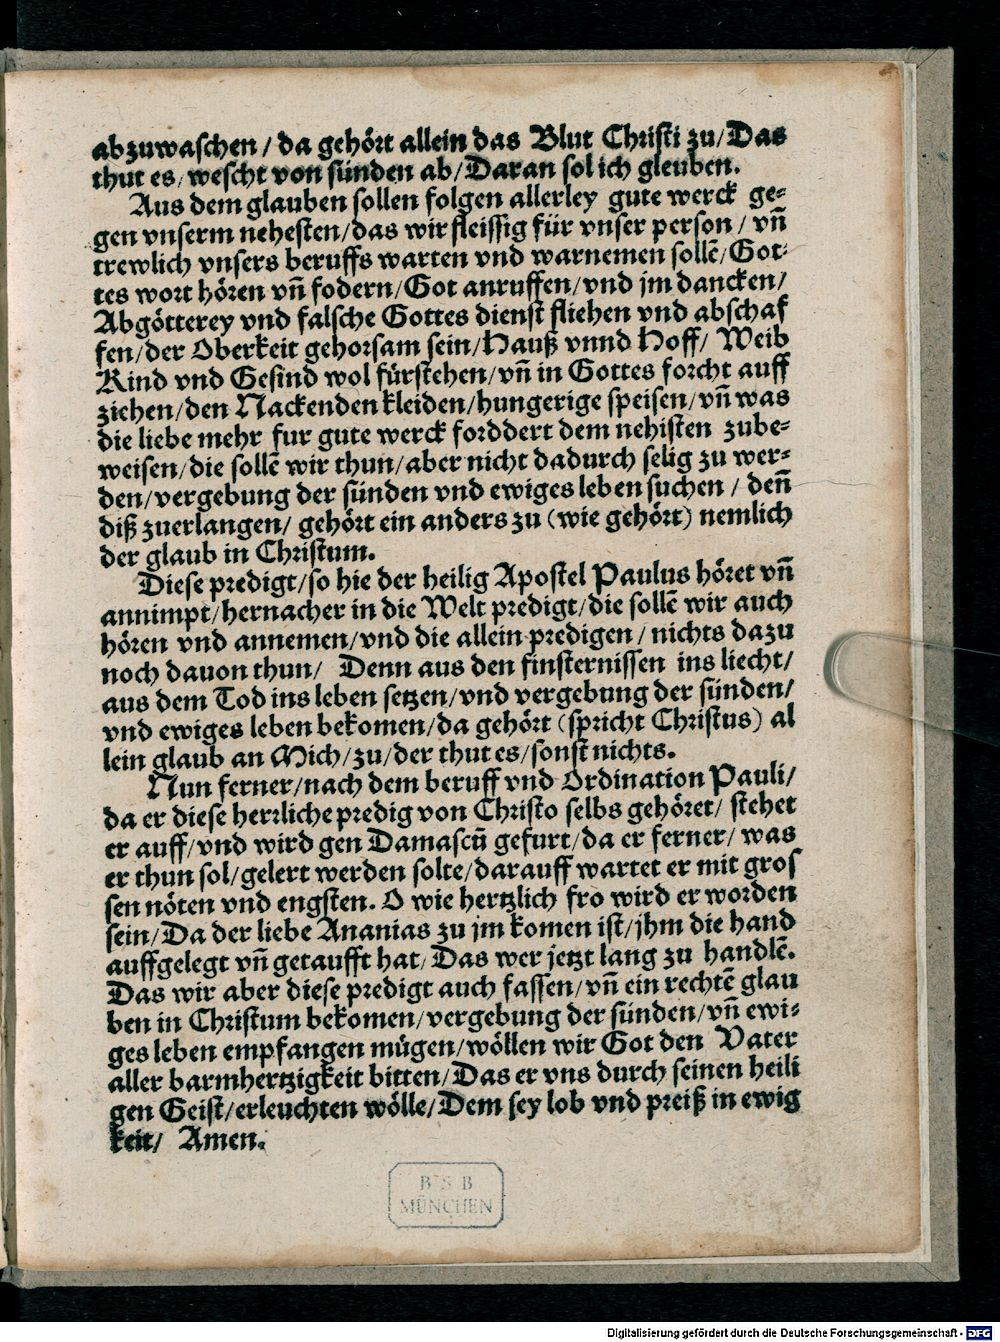 abzuwaschen / da gehört allein das Blut Christi zu/ Das
thut es/ wescht von sünden ab/ Daran sol ich gleuben.
Aus dem glauben sollen folgen allerley gute werck ge-
gen vnserm nehesten/ das wir fleissig für vnser person / vñ
trewlich vnsers beruffs warten vnd warnemen sollẽ/ Got-
tes wort hören vñ fodern/ Got anruffen/ vnd jm dancken/
Abgötterey vnd falsche Gottes dienst fliehen vnd abschaf
fen/ der Oberkeit gehorsam sein/ Hauß vnnd Hoff/ Weib
Kind vnd Gesind wol fürstehen/ vñ in Gottes forcht auff
ziehen/ den Nackenden kleiden/ hungerige speisen/ vñ was
die liebe mehr fur gute werck forddert dem nehisten zube-
weisen/ die sollẽ wir thun/ aber nicht dadurch selig zu wer-
den/ vergebung der sünden vnd ewiges leben suchen / deñ
diß zuerlangen/ gehört ein anders zu (wie gehört) nemlich
der glaub in Christum.
Diese predigt/ so hie der heilig Apostel Paulus höret vñ
annimpt/ hernacher in die Welt predigt/ die sollẽ wir auch
hören vnd annemen/ vnd die allein predigen / nichts dazu
noch dauon thun/ Denn aus den finsternissen ins liecht/
aus dem Tod ins leben setzen/ vnd vergebung der sünden/
vnd ewiges leben bekomen/ da gehört (spricht Christus) al
lein glaub an Mich/ zu/ der thut es/ sonst nichts.
Nun ferner/ nach dem beruff vnd Ordination Pauli/
da er diese herrliche predig von Christo selbs gehöret/ stehet
er auff/ vnd wird gen Damascũ gefurt/ da er ferner/ was
er thun sol/ gelert werden solte/ darauff wartet er mit gros
sen nöten vnd engsten. O wie hertzlich fro wird er worden
sein/ Da der liebe Ananias zu jm komen ist/ jhm die hand
auffgelegt vñ getaufft hat/ Das wer jetzt lang zu handlẽ.
Das wir aber diese predigt auch fassen/ vñ ein rechtẽ glau
ben in Christum bekomen/ vergebung der sünden/ vñ ewi-
ges leben empfangen mügen/ wöllen wir Got den Vater
aller barmhertzigkeit bitten/ Das er vns durch seinen heili
gen Geist/ erleuchten wölle/ Dem sey lob vnd preiß in ewig
keit/ Amen.
B S B
MÜNCHEN
Digitalisierung gefördert durch die Deutsche Forschungsgemeinschaft - DFG